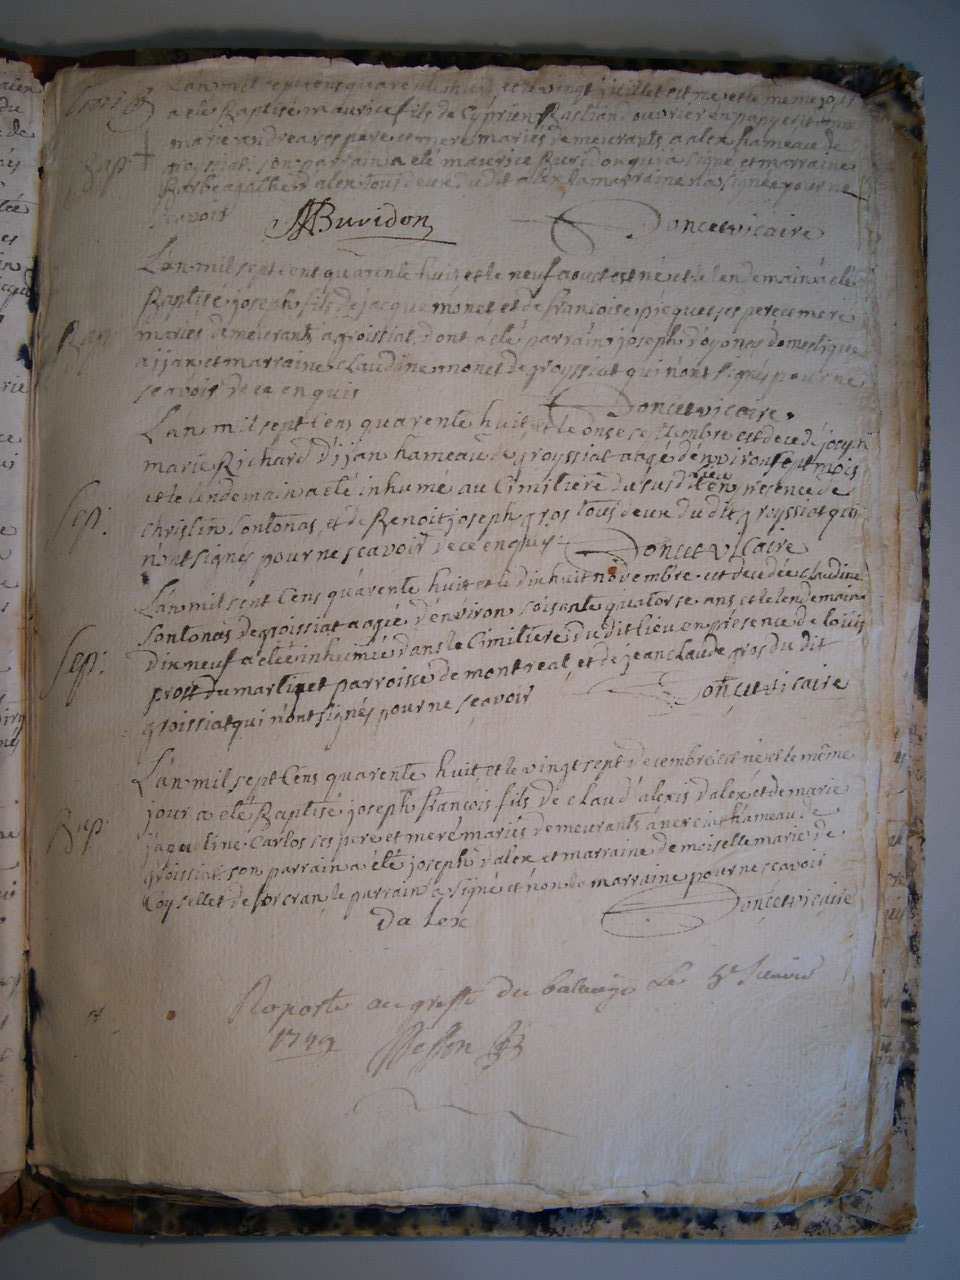 L'an mil sept cent quarente huit et le vingt juillet est né et le meme jour
a eté Baptisé maurice fils de Cyprien Rastian ouvrier en papyer et
marie andrea ses pere et mere mariés demeurants a alex hameau de
groissiat son parrain a eté maurice Buridon qui a signé et marraine
d'alex tous deux du dit alex la marraine n'a signée pour ne
Bap
scavoir
MBuridon
Doncet vicaire
L'an mil sept cent quarente huit et le neuf aoust est né et le lendemain a eté
Baptisé joseph fils de jacque monet et de francoise picquet ses pere et mere
mariés demeurants a groissiat, dont a eté parrain joseph d'oyonas domestique
Bap:
a ijan et marraine Claudine monet de groyssiat qui n'ont signés pour ne
scavoir de ce enquis
Doncet vicaire.
L'an mil sept Cens quarente huit et le onse septembre est decedé joseph
marie Richard d'ijan hameau de groyssiat aagé d'environ sept mois
et le lendemain a eté inhumé au Cimitiere du susdit lieu en presence de
Sep:
christin sontonas, et de Benoit joseph gros tous deux du dit groyssiat qui
n'ont signés pour ne scavoir de ce enquis
Doncet vicaire
L'an mil sept Cens quarente huit et le dixhuit novembre est decedée claudine
sontonas de groissiat aagée d'environ soisente quatorse ans et le lendemain
Sep:
dixneuf a eté inhumée dans le Cimitiere du dit lieu en présence de louis
prost du martinet parroisse de montreal et de jean claude gros du dit
groissiat qui n'ont signés pour ne scavoir
Doncet vicaire
L'an mil sept Cens quarente huit et le vingt sept decembre est né et le même
jour a eté Baptisé joseph françois fils de claud'alexis d'alex et de marie
Bap:
jaqueline Carlos ses pere et mere mariés demeurants a hameau de
groissiat son parrain a eté joseph d'alex et marraine demoiselle marie de
Coysellet de sorcran le parrain a signé et non la marraine pour ne scavoir
Doncet vicaire
Dalex
Raporté au greffe du balliage le
1749